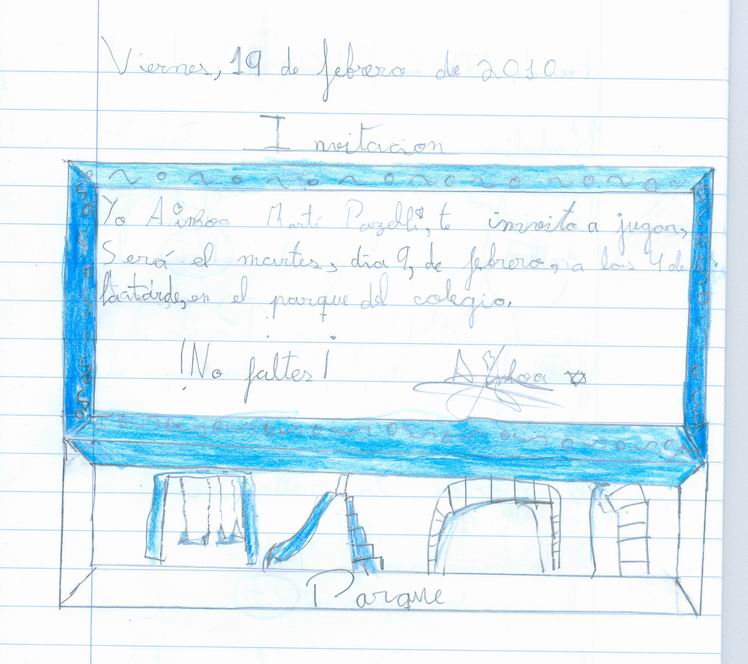 Viernes, 19 de febrero de 2010
Invitacion
Yo Ainhoa Martí te invito a jugar,
Será el martes, día 9, de febrero, a las 4 de
la tarde, en el parque del colegio.
¡No faltes!
Ainhoa
Parque